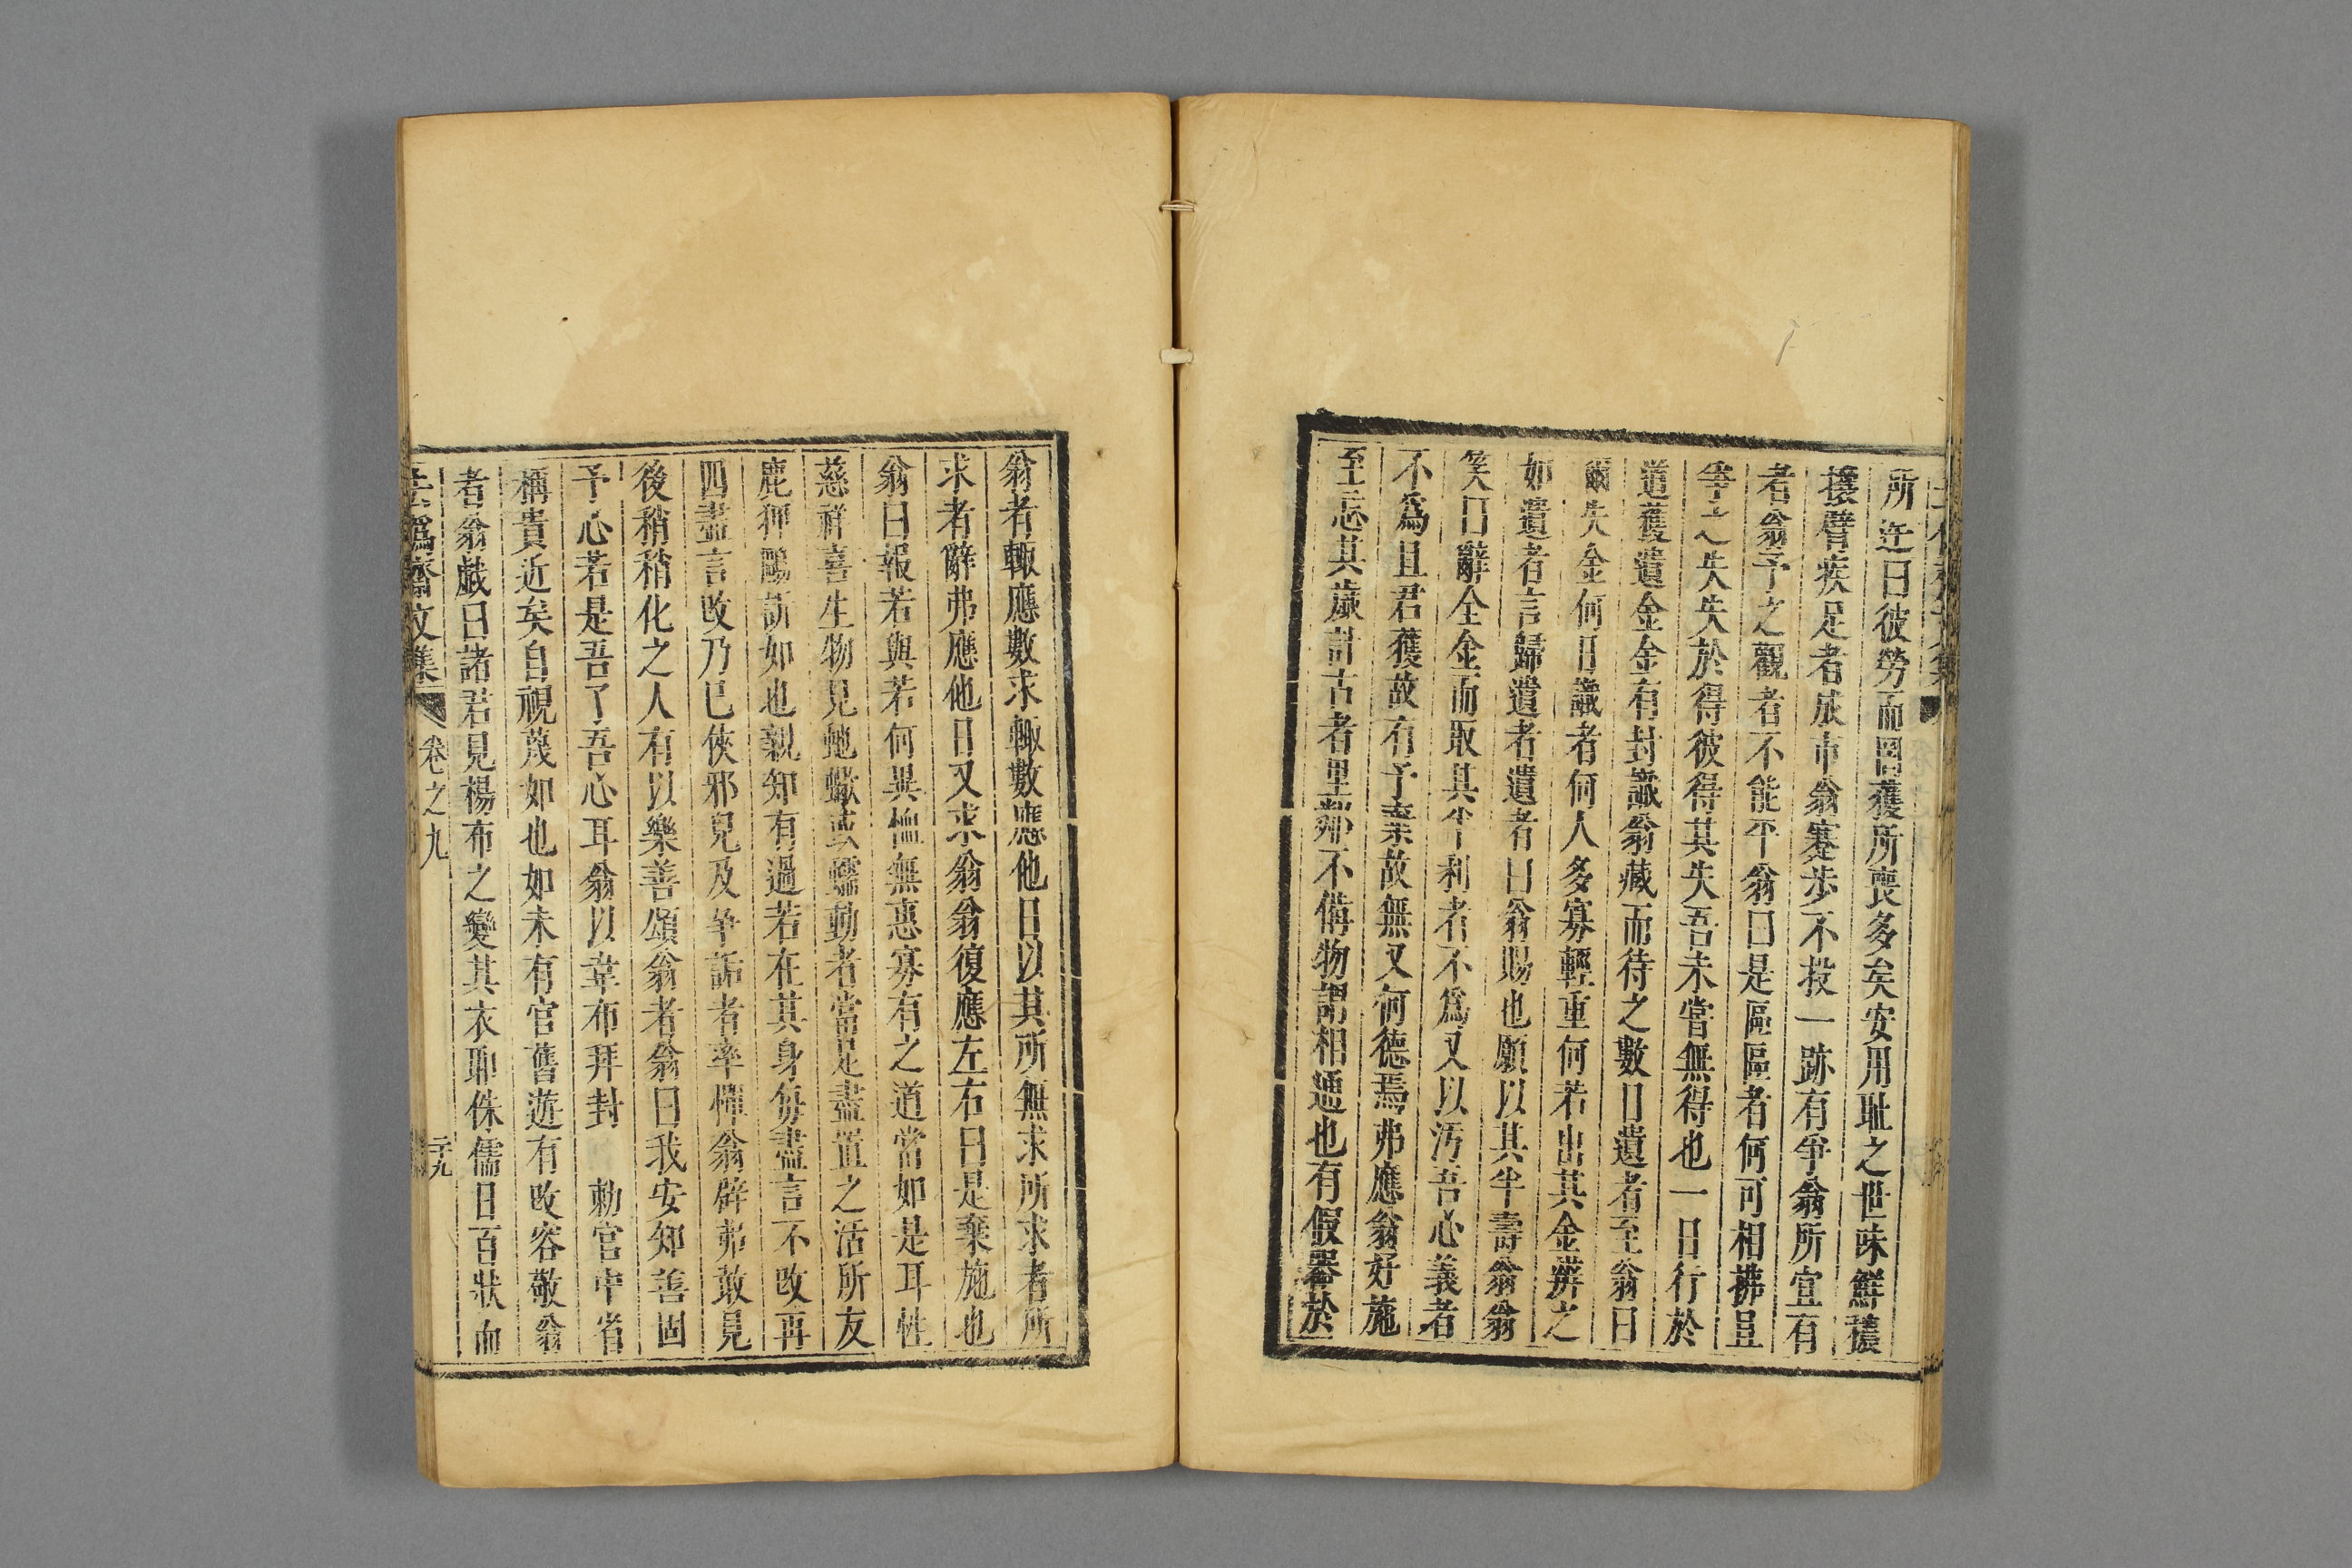 所迕曰彼勞而罟獲所喪多矣安用耻之世味鮮穠
攘臂疾足者成市翁蹇步不投一跡有爭翁所宜有
者翁予之觀者不能平翁曰是區區者何可相拂且
爭之失失於得彼得其失吾未嘗無得也一日行於
道獲遺金金有封識翁藏而待之數日遺者至翁曰
爾失金何日識者何人多寡輕重何若出其金辨之
如遺者言歸遺者遺者曰翁賜也願以其半壽翁翁
笑曰辭全金而取其半利者不爲又以汚吾心義者
不爲且君獲故有予棄故無又何德焉弗應翁好施
至忘其歲計古者里鄰不備物謂相通也有假器於
翁者輙應數求輙數應他日以其所無求所求者所
求者辭弗應他日又求翁翁復應左右曰是棄施也
翁曰報若與若何異恤無惠寡有之道當如是耳性
慈祥喜生物見虵蠍或蠕動者當足盡置之活所友
鹿狎鷗訢如也親知有過若在其身每盡言不改再
四盡言改乃已俠邪兒及爭訴者率憚翁辟弗敢見
後稍稍化之人有以樂善頌翁者翁曰我安知善固
予心若是吾了吾心耳翁以韋布拜封　勅官中省
稱貴近矣自視蔑如也如未有官舊遊有改容敬翁
者翁戯曰諸君見楊布之變其衣耶侏儒日百狀而
卷之九
二十九